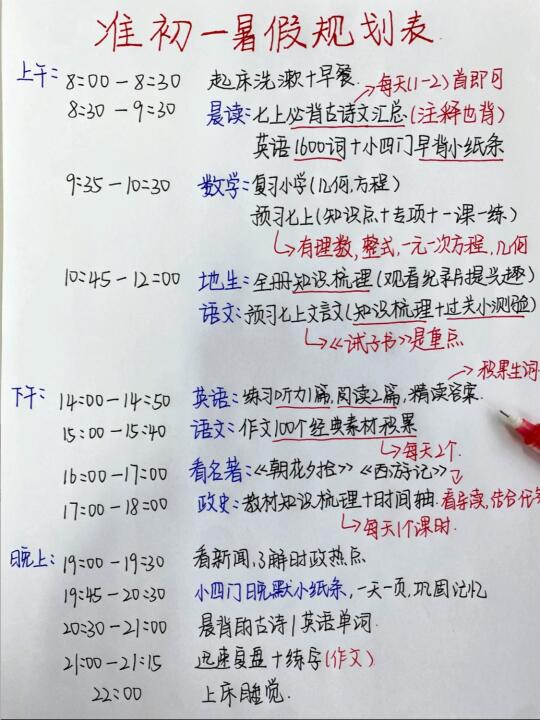 准初一暑假规划表
上午: 8:00-8:30 起床洗漱+早餐
每天(1-2)首即可
8:30-9:30 晨读:七上必背古诗文汇总(注释也背)
英语1600词+小四门早背小纸条
9:35-10:30 数学:复习小学(几何,方程)
预习七上(知识点+专项+一课一练)
有理数,整式,一元一次方程,几何
10:45-12:00 地生:全册知识梳理(观看纪录片提兴趣)
语文:预习七上文言文(知识梳理+过关小测验)
《试子书》是重点
积累生词
下午: 14:00-14:50 英语:练习听力1篇,阅读2篇,精读答案.
15:00-15:40 语文:作文100个经典素材积累
每天2个.
16:00-17:00 看名著:《朝花夕拾》《西游记》
17:00-18:00 政史:教材知识梳理+时间轴.看导读,结合
每天1个课时.
晚上: 19:00-19:30 看新闻,了解时政热点
19:45-20:30 小四门晚默小纸条,一天一页,巩固记忆
20:30-21:00 晨背的古诗/英语单词.
21:00-21:15 迅速复盘+练字(作文)
22:00 上床睡觉.